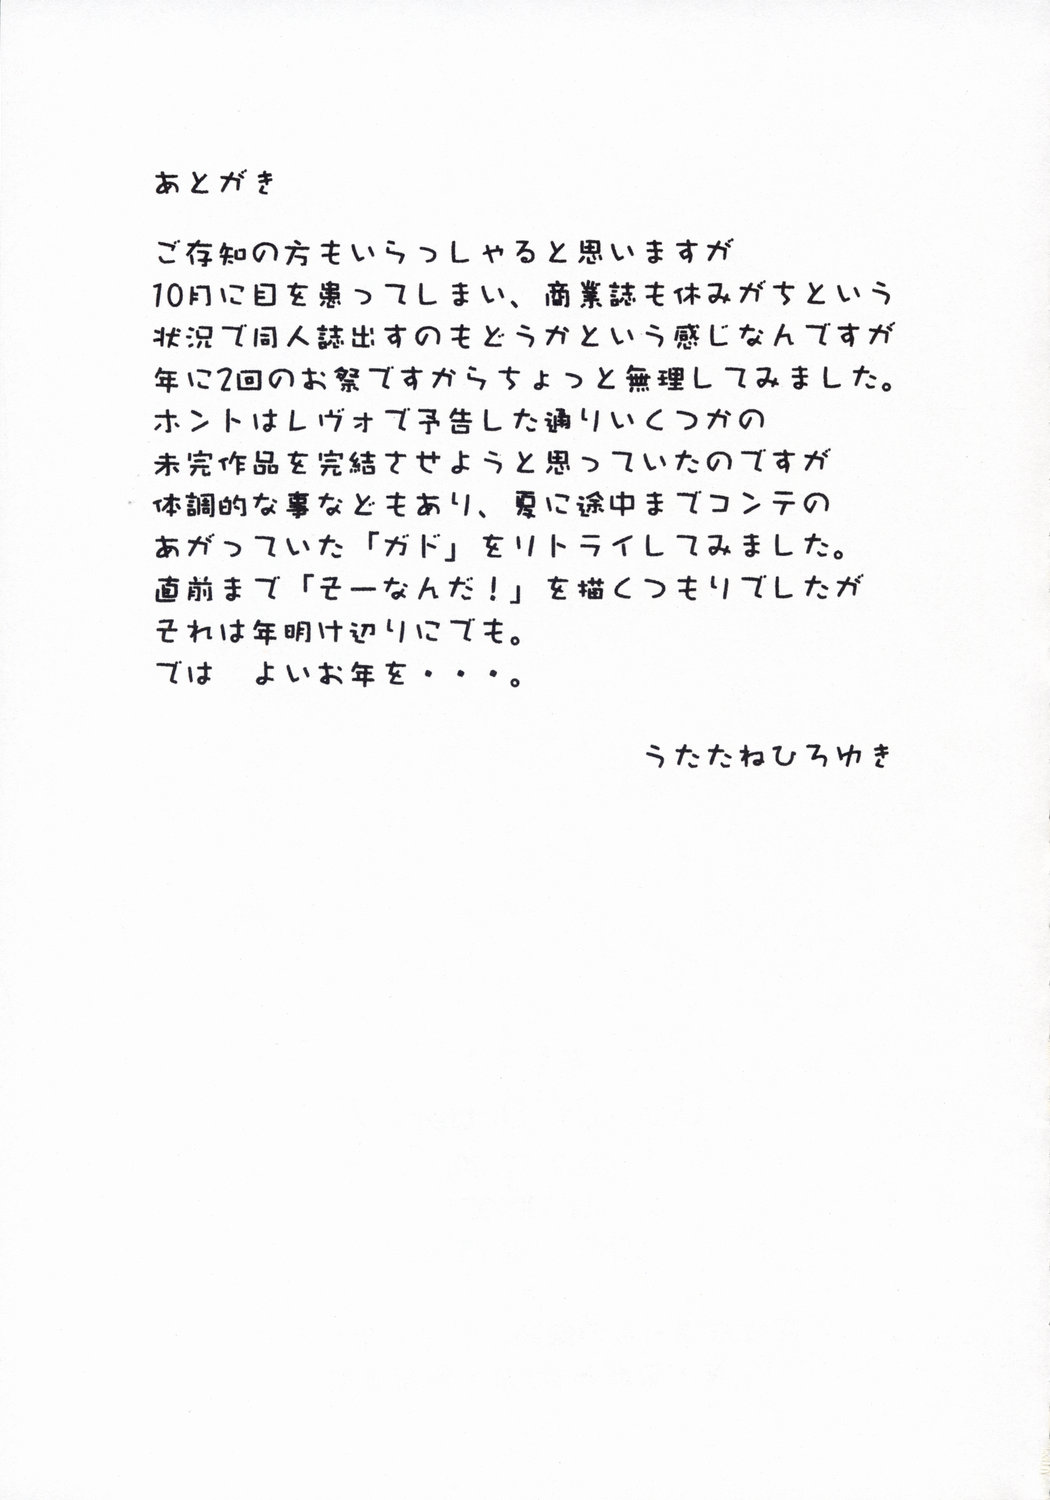 あとがき
ご存知の方もいらっしゃると思いますが
10月に目を患ってしまい、商業誌も休みがちという
状況で同人誌出すのもどうかという感じなんですが
年に2回のお祭ですからちょっと無理してみました。
ホントはレヴォで予告した通りいくつかの
未完作品を完結させようと思っていたのですが
体調的な事などもあり、夏に途中までコンテの
あがっていた「ガド」をリトライしてみました。
直前まで「そーなんだ！」を描くつもりでしたが
それは年明け辺りにでも。
では　よいお年を・・・。
うたたねひろゆき